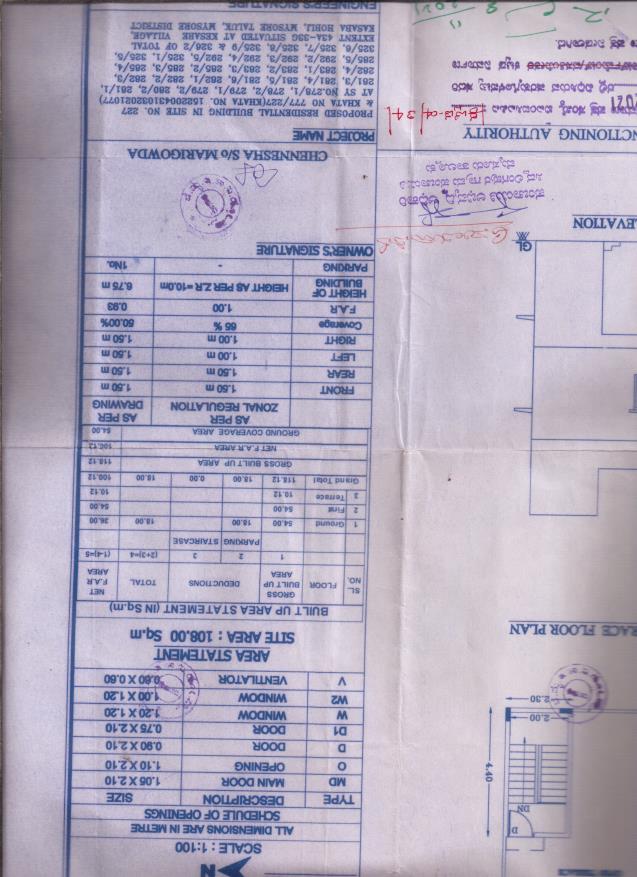 N
SCALE : 1:100
ALL DIMENSIONS ARE IN METRE
SCHEDULE OF OPENINGS
TYPE DESCRIPTION SIZE
MD MAIN DOOR 1.05 X 2.10
O OPENING 1.10 X 2.10
D DOOR 0.90 X 2.10
D1 DOOR 0.75 X 2.10
W WINDOW 1.20 X 1.20
W2 WINDOW 1.00 X 1.20
V VENTILATOR 0.60 X 0.60
AREA STATEMENT
SITE AREA : 108.00 Sq.m
BUILT UP AREA STATEMENT (IN Sq.m)
SL. NO. FLOOR GROSS BUILT UP AREA DEDUCTIONS TOTAL NET F.A.R AREA
1 2 3 (2+3)=4 (1-4)=5
PARKING STAIRCASE
1 Ground 54.00 18.00 18.00 36.00
2 First 54.00 54.00
3 Terrace 10.12 10.12
Grand Total 118.12 18.00 0.00 18.00 100.12
GROSS BUILT UP AREA 118.12
NET F.A.R AREA 100.12
GROUND COVERAGE AREA 54.00
AS PER ZONAL REGULATION AS PER DRAWING
FRONT 1.50 m 1.50 m
REAR 1.50 m 1.50 m
LEFT 1.00 m 1.50 m
RIGHT 1.00 m 1.50 m
Coverage 65 % 50.00%
F.A.R 1.00 0.93
HEIGHT OF BUILDING HEIGHT AS PER Z.R =10.0m 6.75 m
PARKING - 1No.
OWNER'S SIGNATURE
CHENNESHA S/o MARIGOWDA
PROJECT NAME
PROPOSED RESIDENTIAL BUILDING IN SITE NO. 227
& KHATA NO 777/227(KHATA NO. 152600431030221077)
AT SY NO.278/1, 278/2, 279/1, 279/2, 280/2, 281/1,
281/3, 281/4, 281/5, 281/6, 282/1, 282/2, 282/3,
282/4, 283/1, 283/2, 283/3, 285/2, 285/3, 285/4,
285/5, 292/2, 292/3, 292/4, 292/5, 325/1, 325/5,
325/6, 325/7, 325/8, 325/9 & 326/2 OF TOTAL
EXTENT 43A-33G SITUATED AT KESARE VILLAGE,
KASABA HOBLI, MYSORE TALUK, MYSORE DISTRICT
ENGINEER'S SIGNATURE
D
DN
4.40
2.00
2.30
RACE FLOOR PLAN
GL
LEVATION
ಪಂಚಾಯಿತಿ ಅಭಿವೃದ್ಧಿ ಅಧಿಕಾರಿ
ಸಿದ್ದಲಿಂಗಪುರ ಗ್ರಾಮ ಪಂಚಾಯಿತಿ
ಮೈಸೂರು ತಾಲ್ಲೂಕು
NCTIONING AUTHORITY
2021